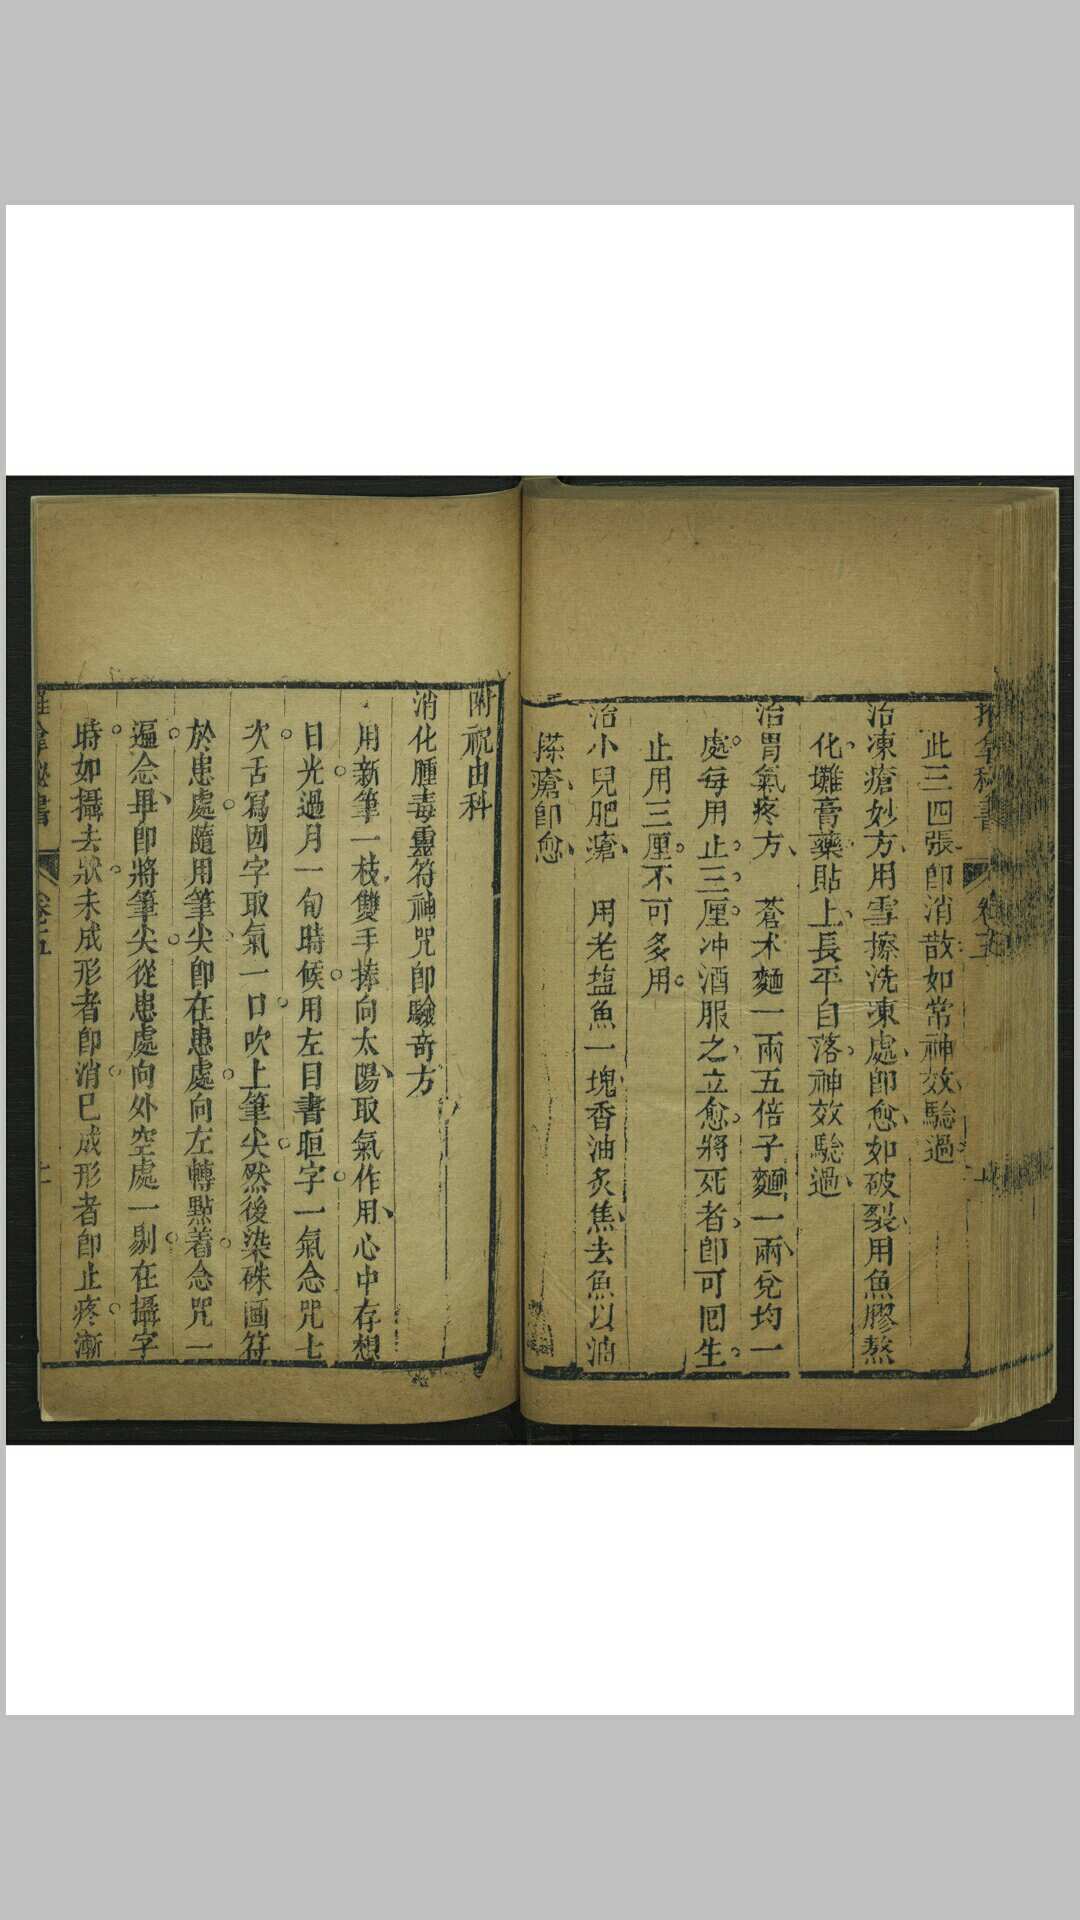 推拿秘書
卷五
此三四張即消散如常神效驗過
治凍瘡妙方用雪擦洗凍處即愈如破裂用魚膠熬
化攤膏藥貼上長平自落神效驗過
治胃氣疼方 蒼朮麵一兩五倍子麵一兩兌均一
處每用止三厘冲酒服之立愈將死者即可回生
止用三厘不可多用
治小兒肥瘡 用老塩魚一塊香油炙焦去魚以油
搽瘡即愈
附祝由科
消化腫毒靈符神咒即驗奇方
用新筆一枝雙手捧向太陽取氣作用心中存想
日光過月一旬時候用左目書晅字一氣念咒七
次舌寫囡字取氣一口吹上筆尖然後染硃画符
於患處隨用筆尖即在患處向左轉點着念咒一
遍念畢即將筆尖從患處向外空處一剔在攝字
時如攝去狀未成形者即消已成形者即止疼漸
推拿秘書
卷五